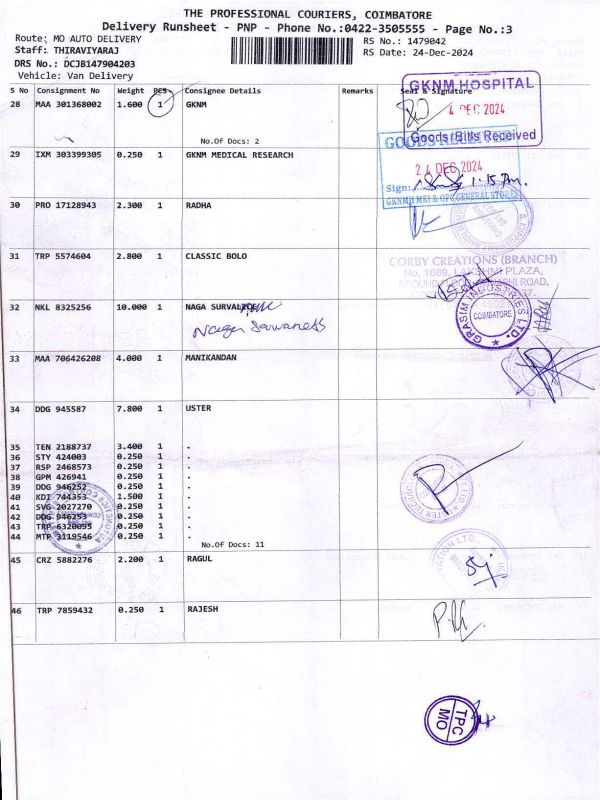 THE PROFESSIONAL COURIERS, COIMBATORE
Delivery Runsheet - PNP - Phone No.:0422-3505555 - Page No.:3
Route: MO AUTO DELIVERY
Staff: THIRAVIYARAJ
DRS No.: DCJB147904203
Vehicle: Van Delivery
RS No.: 1479042
RS Date: 24-Dec-2024
S No Consignment No Weight PCS Consignee Details Remarks Seal & Signature
28 MAA 301368002 1.600 1 GKNM
No.Of Docs: 2
GKNM HOSPITAL
4 DEC 2024
Goods/Bills Received
29 IXM 303399305 0.250 1 GKNM MEDICAL RESEARCH
24 DEC 2024
Sign: 1.15 Pm.
GKNMH MRI & OPG GENERAL STORES
30 PRO 17128943 2.300 1 RADHA
31 TRP 5574604 2.800 1 CLASSIC BOLO
CORBY CREATIONS (BRANCH)
No. 1089, LAKSHMI PLAZA,
32 NKL 8325256 10.000 1 NAGA SURVAL
GRASIM INDUSTRIES LTD.
COIMBATORE
33 MAA 706426208 4.000 1 MANIKANDAN
34 DDG 945587 7.800 1 USTER
35 TEN 2188737 3.400 1 .
36 STY 424003 0.250 1 .
37 RSP 2468573 0.250 1 .
38 GPM 426941 0.250 1 .
39 DDG 946252 0.250 1 .
40 KDI 744353 1.500 1 .
41 SVG 2027270 0.250 1 .
42 DDG 946253 0.250 1 .
43 TRP 6320095 0.250 1 .
44 MTP 3119546 0.250 1 .
No.Of Docs: 11
45 CRZ 5882276 2.200 1 RAGUL
46 TRP 7859432 0.250 1 RAJESH
TPC
MO